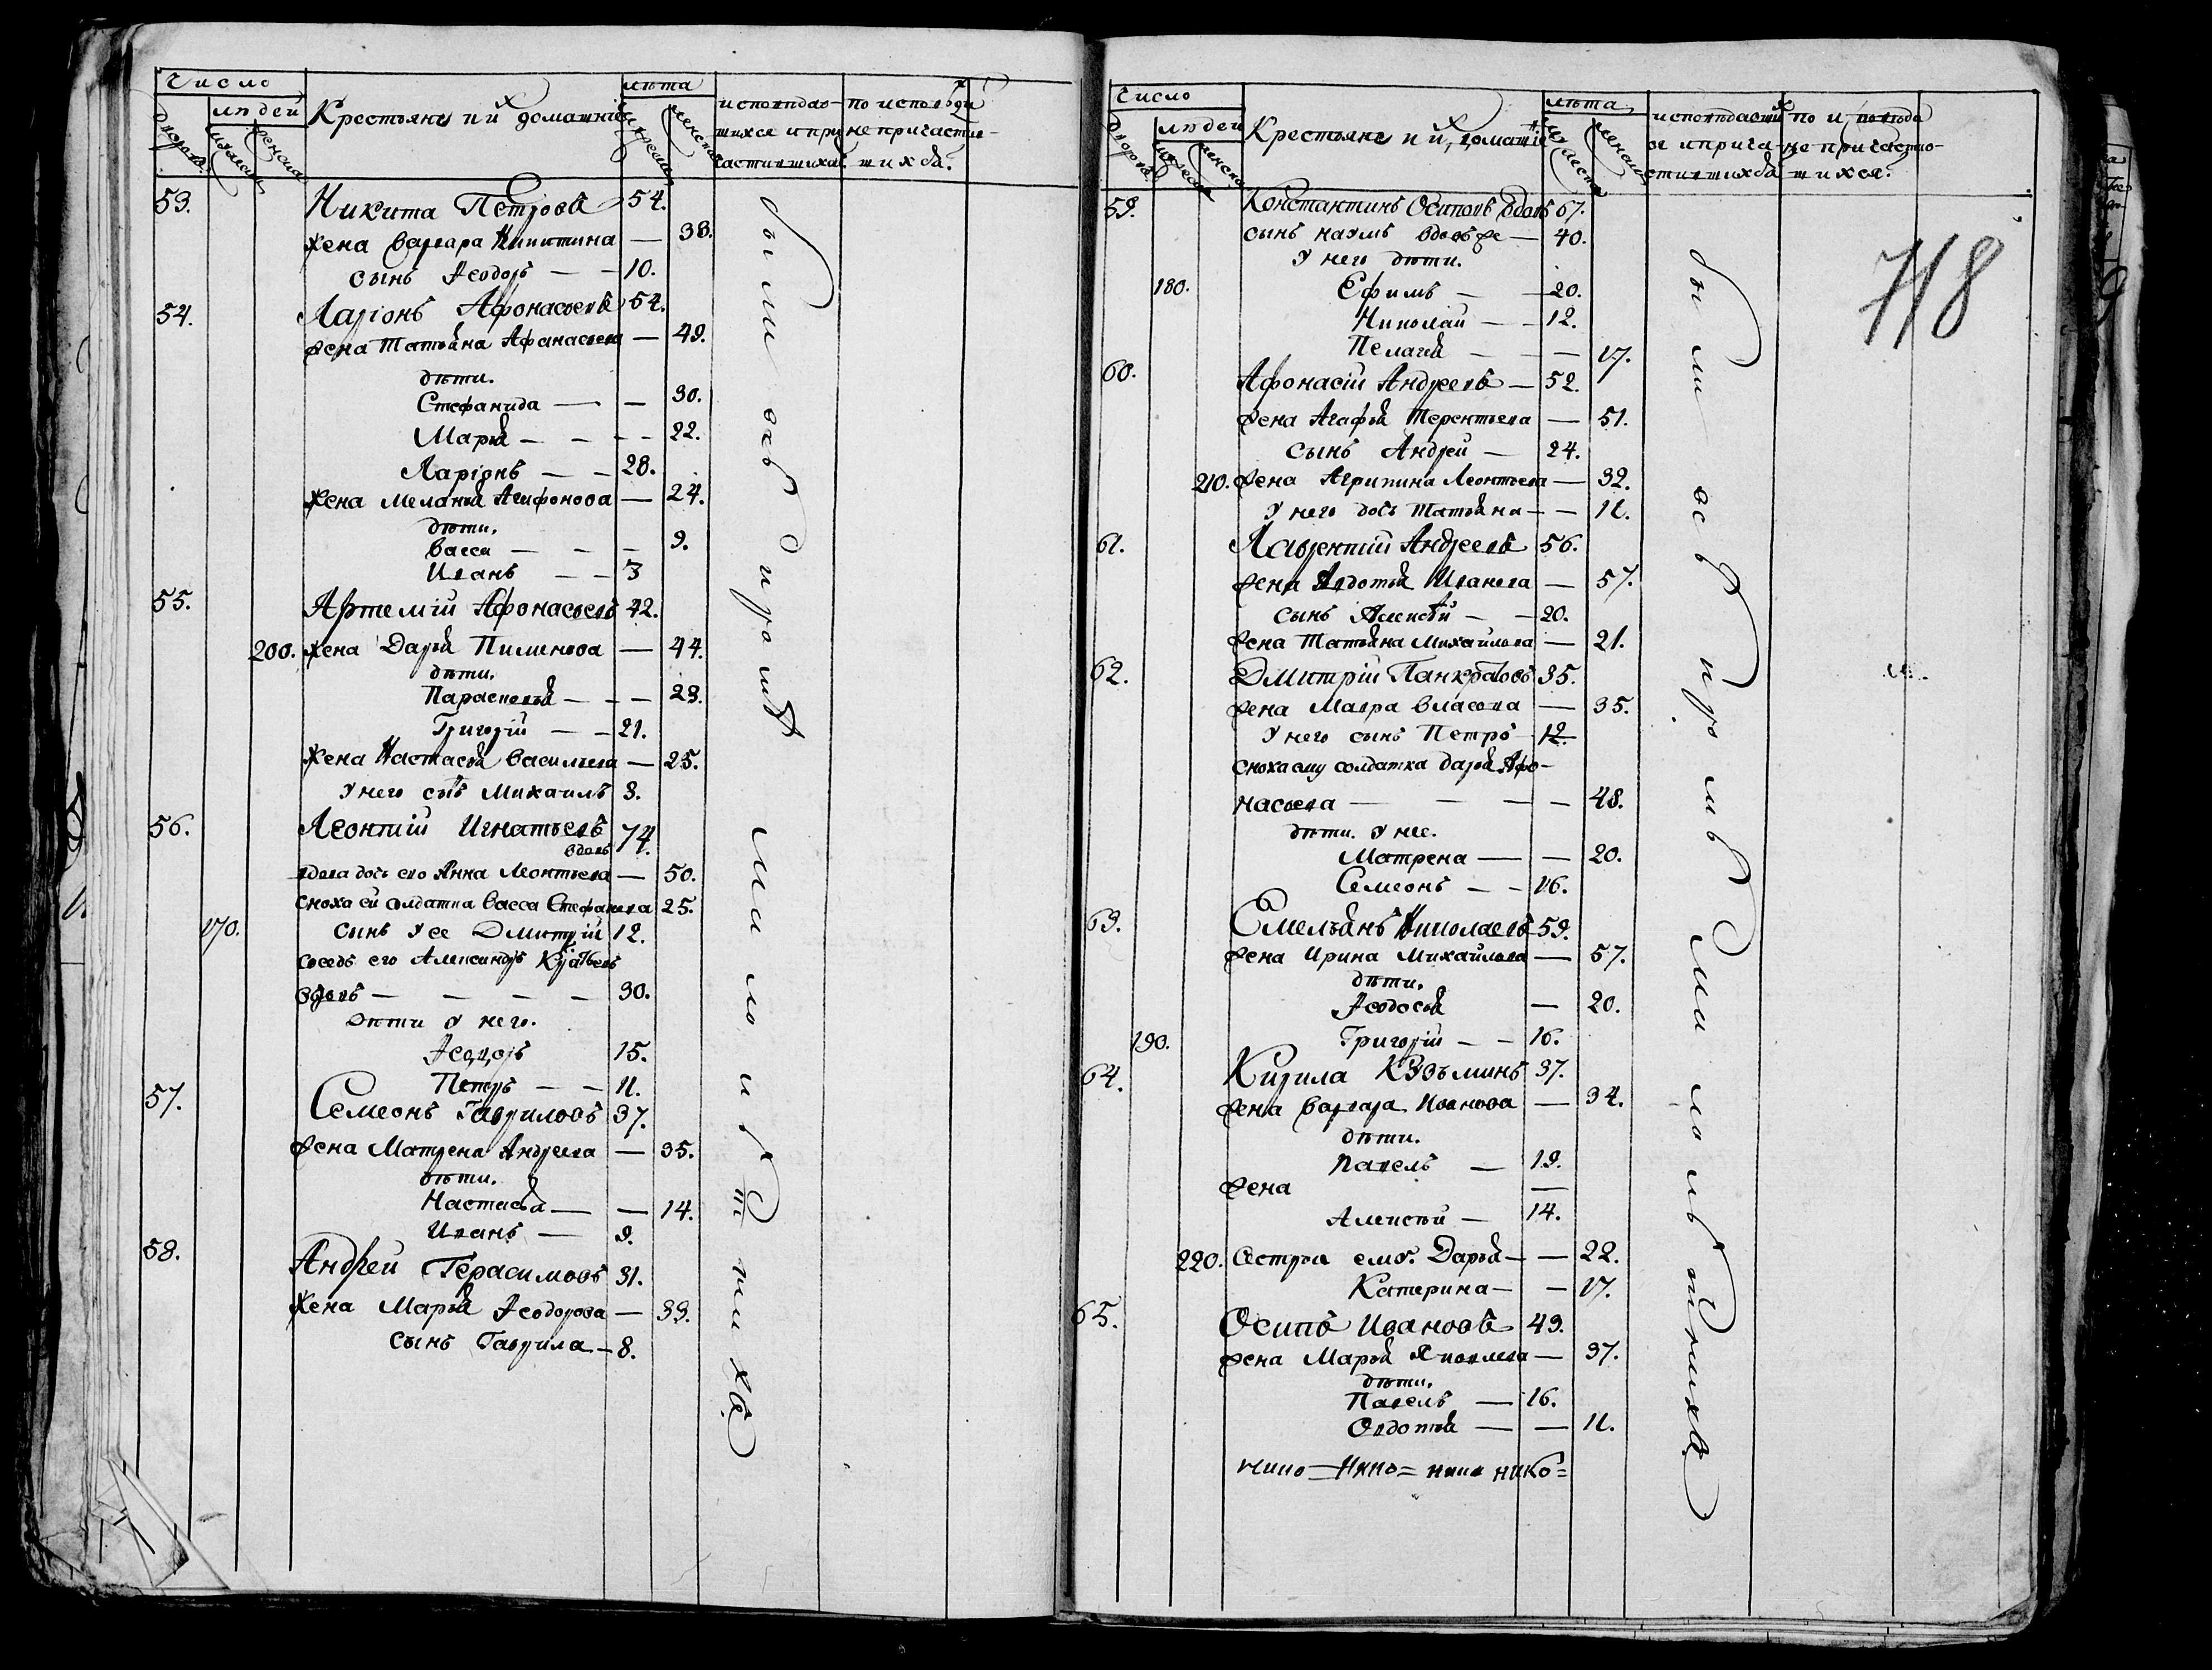 Число
людей
Крестьяне и их домашніе
лѣта
исповѣдав- по исповѣди
шихся и при не причастив-
частившихся шихся
дворовъ мужеска женска мужеска женска
53. Никита Петровъ 54.
жена Варвара Никитина — 38.
сынъ Ѳеодоръ — — 10.
54. Ларіонъ Афонасьевъ 54.
жена Татьяна Афанасьева — 49.
дѣти.
Стефанида — — 30.
Марья — — — 22.
Ларіонъ — — 28.
жена Меланья Агафонова — 24.
дѣти.
Васса — — — 9.
Иванъ — — 3
55. Артемій Афонасьевъ 42.
200. жена Дарья Пименова — 44.
дѣти.
Параскевья — — — 23.
Григорій — — 21.
жена Настасья Васильева — 25.
у него сынъ Михаилъ 3.
56. Леонтій Игнатьевъ
вдовъ 74.
вдова дочь его Анна Леонтьева — 50.
сноха ей солдатка Васса Стефанова 25.
170. сынъ у ее Дмитрій 12.
соседъ его Александръ
вдовъ — — — — 30.
дѣти у него.
Ѳеодоръ 15.
Петръ — — 11.
57. Семеонъ Гавриловъ 37.
жена Матрена Андреева — 35.
дѣти.
Настасья — — 14.
Иванъ — 9.
58. Андрей Герасимовъ 31.
жена Марья Ѳеодорова — 33.
сынъ Гаврила — 8.
были
Число
людей
Крестьяне и их домашніе
лѣта
исповѣдавших по исповѣди
ся и прича- не причастив-
стившихся шихся.
дворовъ мужеска женска мужеска женска
718
59. Константинъ Осиповъ вдовъ 67.
сынъ Наумъ вдовъ же — 40.
у него дѣти.
180. Ефимъ — — 20.
Николай — — 12.
Пелагея — — — 17.
60. Афонасій Андреевъ — 52.
жена Агафья Терентьева — 51.
сынъ Андрей — 24.
210. жена Агрипина Леонтьева — 32.
у него дочь Татьяна — — 11.
61. Лаврентій Андреевъ 56.
жена Авдотья Иванова — 57.
сынъ Алексѣй — — 20.
жена Татьяна Михайлова — 21.
62. Дмитрій Панкратовъ 35.
жена Мавра Власова — 35.
у него сынъ Петръ 12.
сноха ему солдатка Дарья Афо-
насьева — — — — 48.
дѣти у нее.
Матрена — — 20.
Семеонъ — — 16.
63. Емельянъ Николаевъ 59.
жена Ирина Михайлова — 57.
дѣти.
Ѳеодосья — 20.
190. Григорій — — 16.
64. Кирила Кузьминъ 37.
жена Варвара Иванова — 34.
дѣти.
Павелъ — 19.
жена —
Алексѣй — 14.
220. Сестры ему. Дарья — — 22.
Катерина — — 17.
65. Осипъ Ивановъ 49.
жена Марья Яковлева — 37.
дѣти.
Павелъ — 16.
Овдотья — — 11.
были